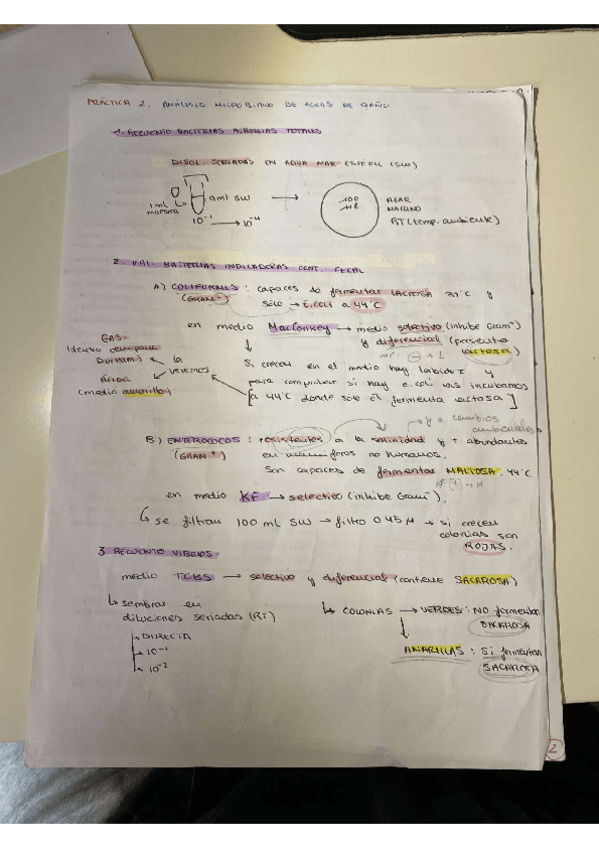 PRÁCTICA 2. ANÁLISIS MICROBIANO DE AGUAS DE BAÑO
1. RECUENTO BACTERIAS AEROBIAS TOTALES
DISOL. SERIADAS EN AGUA MAR ESTÉRIL (SW)
1 mL muestra
9ml SW
10⁻¹ → 10⁻⁴
100 µL
AGAR
MARINO
RT (temp. ambiente)
2. VAL. BACTERIAS INDICADORAS CONT. FECAL
A) COLIFORMES : capaces de fermentar LACTOSA 37°C y
(GRAM -) sólo → E.coli a 44°C
en medio MacConkey → medio selectivo (inhibe Gram⁺)
y diferencial (presenta
LACTOSA)
GAS
(dentro campana
Durham)
la
vemos
ÁCIDO
(medio amarillo)
Si crecen en el medio hay turbidez y
para comprobar si hay e.coli las incubamos
[a 44°C donde sólo él fermenta lactosa]
B) ENTEROCOCOS : resistentes a la salinidad y + abundantes
y a cambios
ambientales
(GRAM +) en mamíferos no humanos.
Son capaces de fermentar MALTOSA. 44°C
KF (+) → M
en medio KF → selectivo (inhibe Gram⁻).
↳ se filtran 100 mL SW → filtro 0'45 µ → si crecen
colonias son
ROJAS.
3. RECUENTO VIBRIOS
medio TCBS → selectivo y diferencial (contiene SACAROSA)
↳ sembrar en
diluciones seriadas (RT)
DIRECTA
10⁻¹
10⁻²
↳ COLONIAS → VERDES: NO fermentan
SACAROSA
AMARILLAS : Sí fermentan
SACAROSA
2